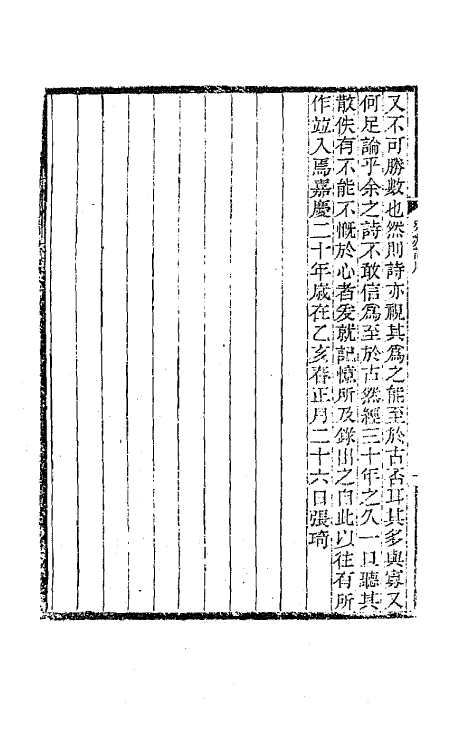 又不可勝數也然則詩亦視其爲之能至於古否耳其多與寡又
何足論乎余之詩不敢信爲至於古然經三十年之久一旦聽其
散佚有不能不慨於心者爰就記憶所及錄出之自此以往有所
作竝入焉嘉慶二十年歲在乙亥春正月二十六日張琦